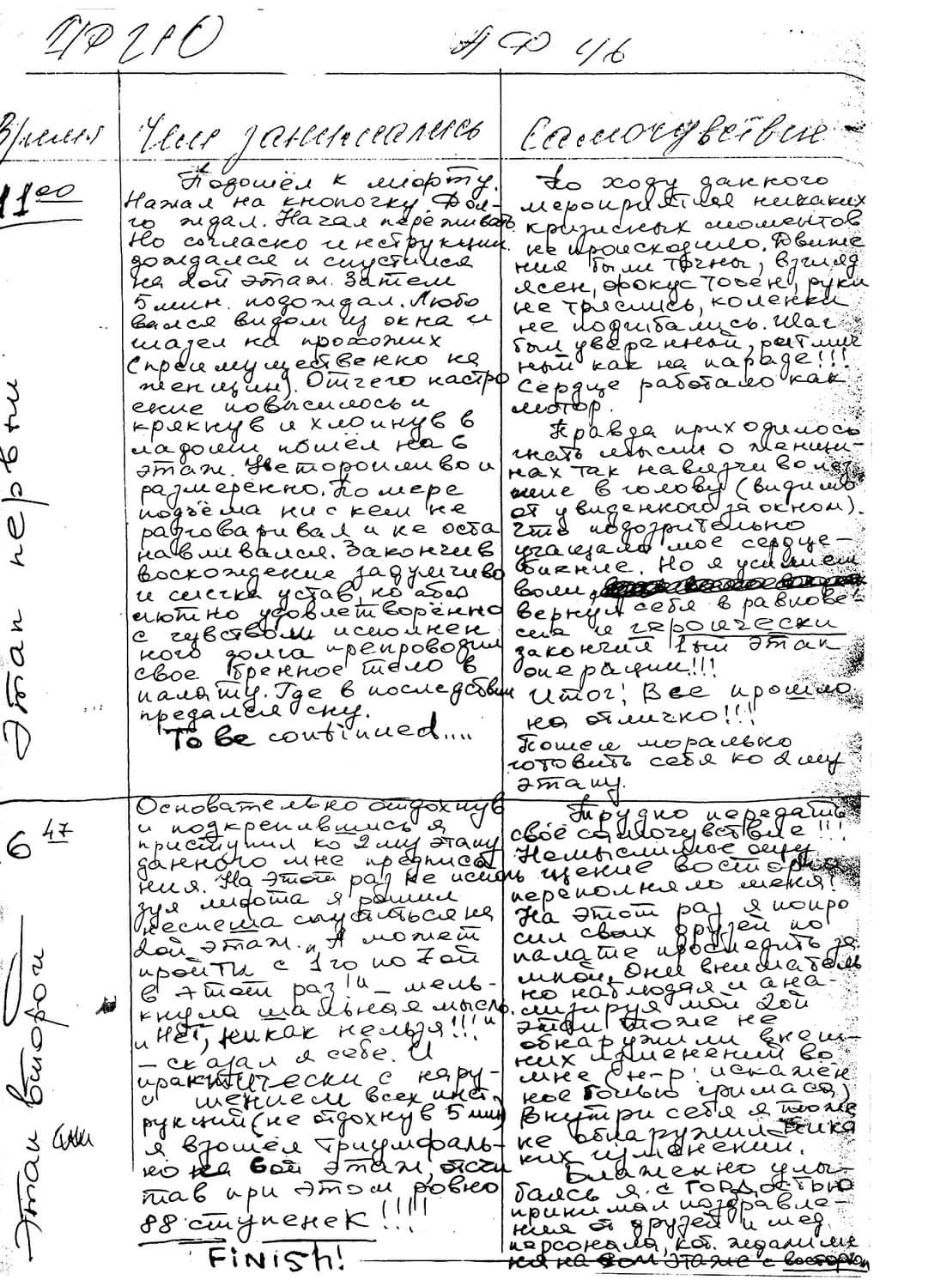 АФ 4/6
Время
Чем занимались
Самочувствие
11 00
Этап первый
Подошёл к лифту.
Нажал на кнопочку. Дол-
го ждал. Начал переживать
Но согласно инструкции
дождался и спустился
на 2ой этаж. Затем
5 мин. подождал. Любо
вался видом из окна и
глазел на прохожих
(преимущественно на
женщин). Отчего настро
ение повысилось и
крякнув и хлопнув в
ладоши пошёл на 6
этаж. Неторопливо и
размеренно. По мере
подъёма ни с кем не
разговаривал и не оста
навливался. Закончив
восхождение задумчиво
и слегка устав, но абсо
лютно удовлетворённо
с чувством исполнен
ного долга препроводил
свое бренное тело в
палату. Где в последствии
предался сну.
To be continued....
По ходу данного
мероприятия никаких
кризисных моментов
не происходило. Движе
ния были точны, взгляд
ясен, фокус точен, руки
не тряслись, коленки
не подгибались. Шаг
был уверенный, ритмич
ный как на параде!!!
Сердце работало как
мотор.
Правда приходилось
гнать мысли о женщи-
нах так навязчиво лез
шие в голову (видимо
от увиденного за окном).
Что подозрительно
учащало мое сердце-
биение. Но я усилием
воли
вернул себя в равнове-
сие и героически
закончил 1ый этап
операции!!!
Итог! Все прошло
на отлично!!!
Пошел морально
готовить себя ко 2му
этапу.
6 47
Этап второй
Основательно отдохнув
и подкрепившись я
приступил ко 2му этапу
данного мне предписа
ния. На этот раз не исполь
зуя лифта я решил
неспеша спуститься на
2ой этаж. "А может
пройти с 1го по 7ой
в этот раз!" - мель-
кнула шальная мысль.
"Нет, никак нельзя!!!"
- сказал я себе. И
практически с нару-
шением всех инст
рукций (не отдохнув 5 мин)
я взошёл триумфаль-
но на 6ой этаж, отсчи
тав при этом ровно
88 ступенек!!!!
FiNiSH!
Трудно передать
своё самочувствие!!!
Немыслимое ощу
щение восторга
переполняло меня!
На этот раз я попро
сил своих друзей по
палате проследить за
мной. Они вниматель
но наблюдая и ана-
лизируя мой 2ой
этап тоже не
обнаружили внеш-
них изменений во
мне (н-р: искажён
ное болью гримаса)
Внутри себя я тоже
не обнаружил ника
ких изменений.
Блаженно улы-
баясь я с гордостью
принимал поздравле-
ния от друзей и мед.
персонала, кот. ждали ме
ня на 6ом этаже с восторгом